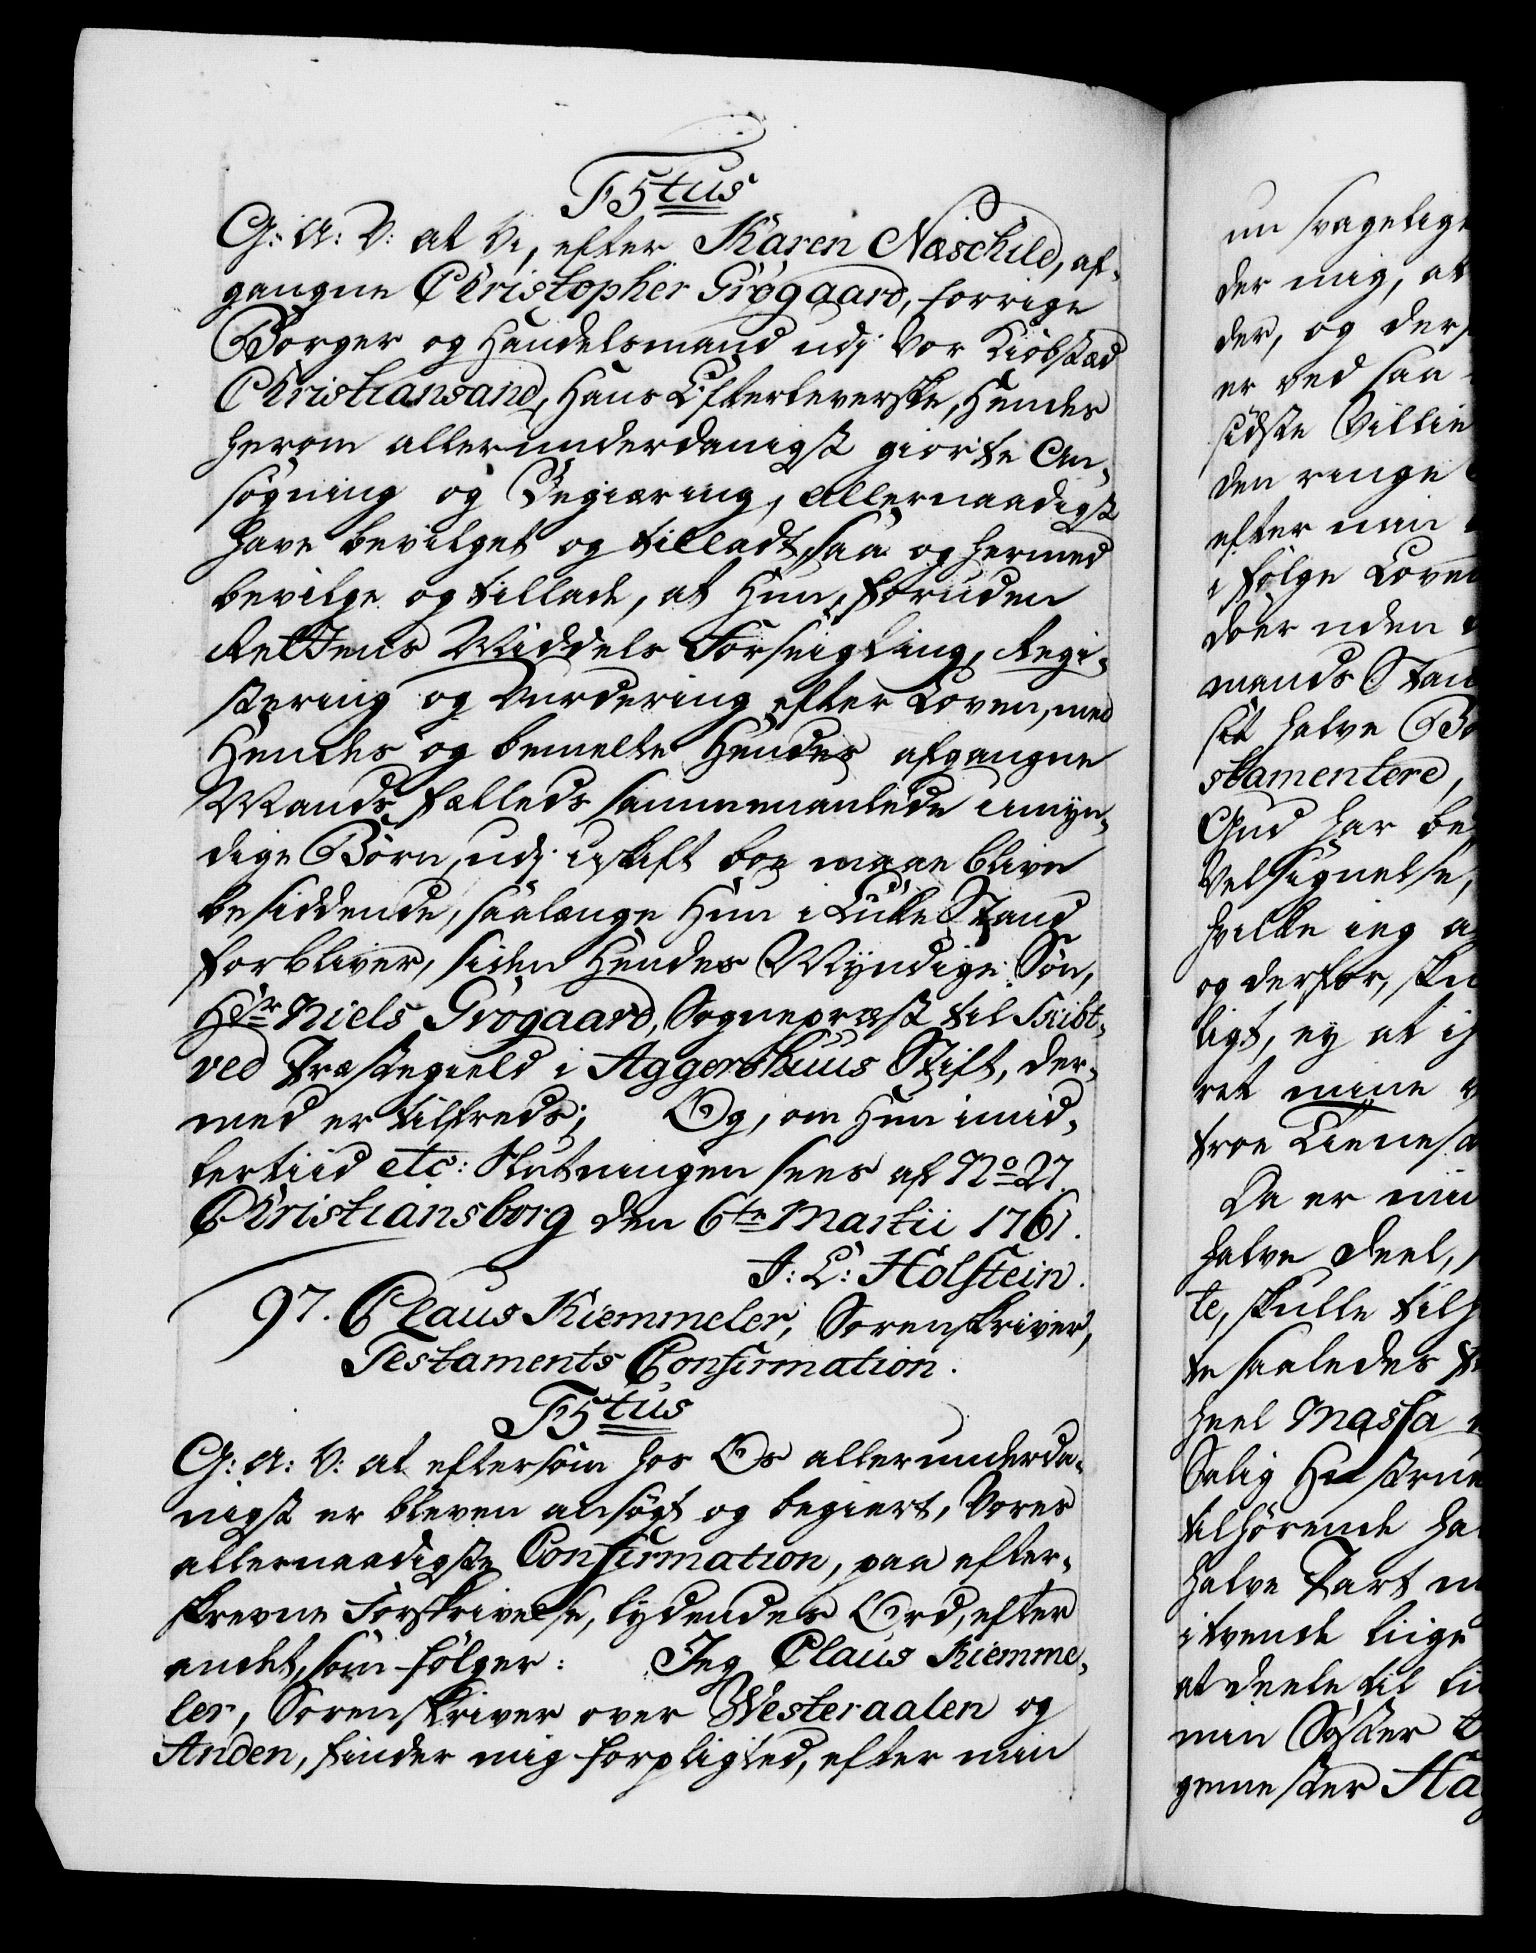 F5tus
G: A: V: at Vi, efter Karen Næschild, af-
gangne Christopher Grögaard, forrige
Borger og Handelsmand udj Vor Kiöbstæd
Christiansand, Hans Efterleverske, Hendes
herom allerunderdanigst giorte An-
søgning og Begiæring, allernaadigst
have bevilget og tilladt, saa og hermed
bevilge og tillade, at Hun, foruden
Rettens Middels Forseigling, Regi-
stering og Vurdering efter Loven, med
Hendes og bemelte Hendes afgangne
Mands fælleds sammenavlede umyn-
dige Børn, udj uskift boe maae blive
besiddende, saalænge Hun i Enke Stand
forbliver, siden Hendes Myndige Søn,
Hr Niels Grögaard, Sognepræst til Skibt-
ved Præstegield i Aggershuus Stift, der-
med er tilfreds; Og, om Hun imid-
lertiid etc: Slutningen sees af No 27.
Christiansborg den 6te Martii 1761.
J: L: Holstein.
97. Claus Kiemmeler, Sorenskriver,
Testaments Confirmation.
F5tus
G: A: V: at eftersom hos Os allerunderda-
nigst er bleven ansøgt og begiert, Vores
allernaadigste Confirmation, paa efter-
skrevne Forskrivelse, lydendes Ord, efter
andet, som følger: Jeg Claus Kiemme-
ler, Sorenskriver over Westeraalen og
Anden, finder mig forpligted, efter min
un svagelige
der mig, at
der, og der
er ved saa
sidste Villie
den ringe
efter min
i følge Loven
døer uden
mands Stan
sit halve Bo
stamentere,
Gud har be
Velsignelse,
hvilke ieg a
og derfor, sku
ligt, ey at i
ret mine
troe Tienes
Da er min
halve Deel,
te, skulle tilh
te saaledes
heel Massa
Salig Hustrue
tilhørende ha
halve Part
i tvende liige
at deele til li
min Søster
gemester Ha